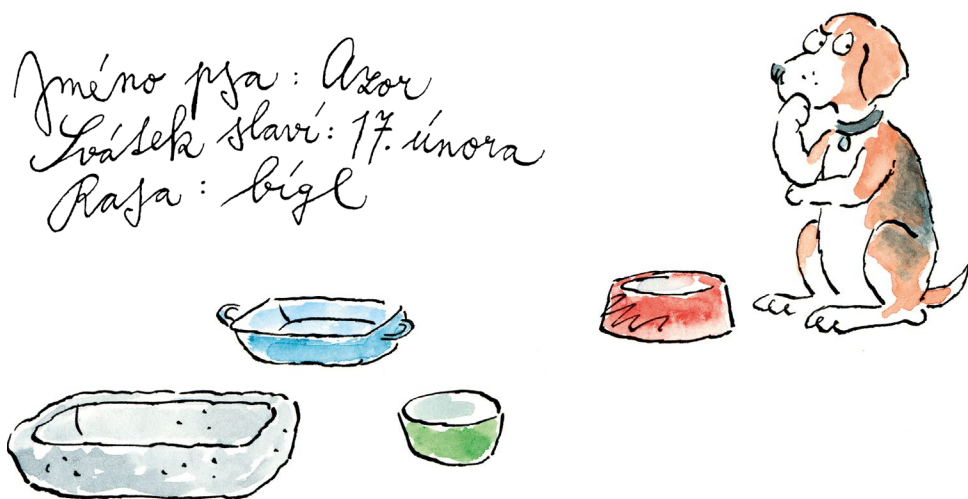 Jméno psa : Azor
Svátek slaví : 17. února
Rasa : bígl